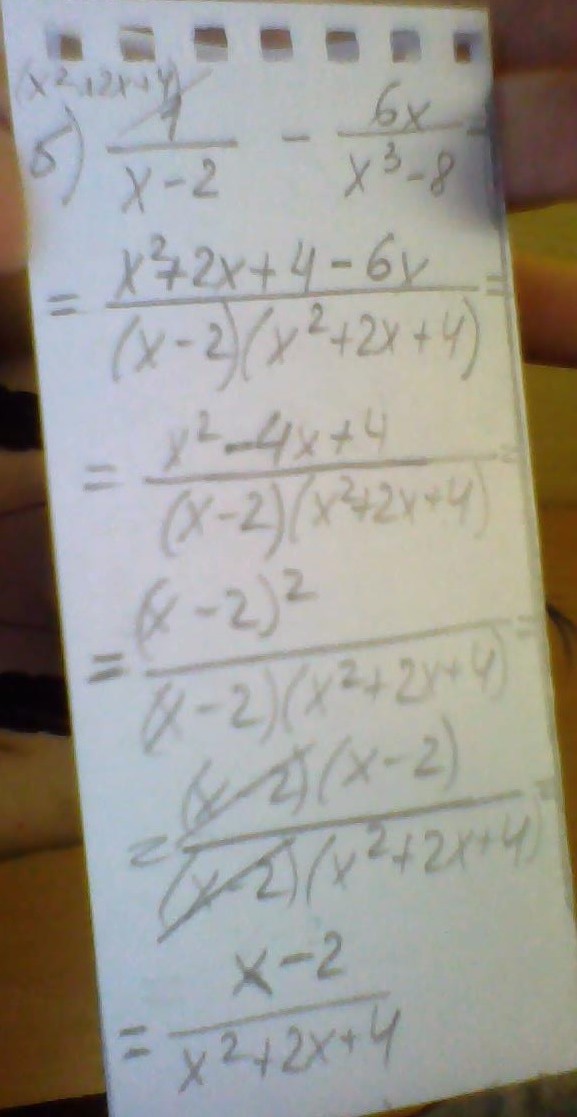 (x²+2x+4)
б) 1/(x-2) - 6x/(x³-8) =
= (x²+2x+4-6x)/((x-2)(x²+2x+4)) =
= (x²-4x+4)/((x-2)(x²+2x+4)) =
= (x-2)²/((x-2)(x²+2x+4)) =
= (x-2)(x-2)/((x-2)(x²+2x+4)) =
= (x-2)/(x²+2x+4)